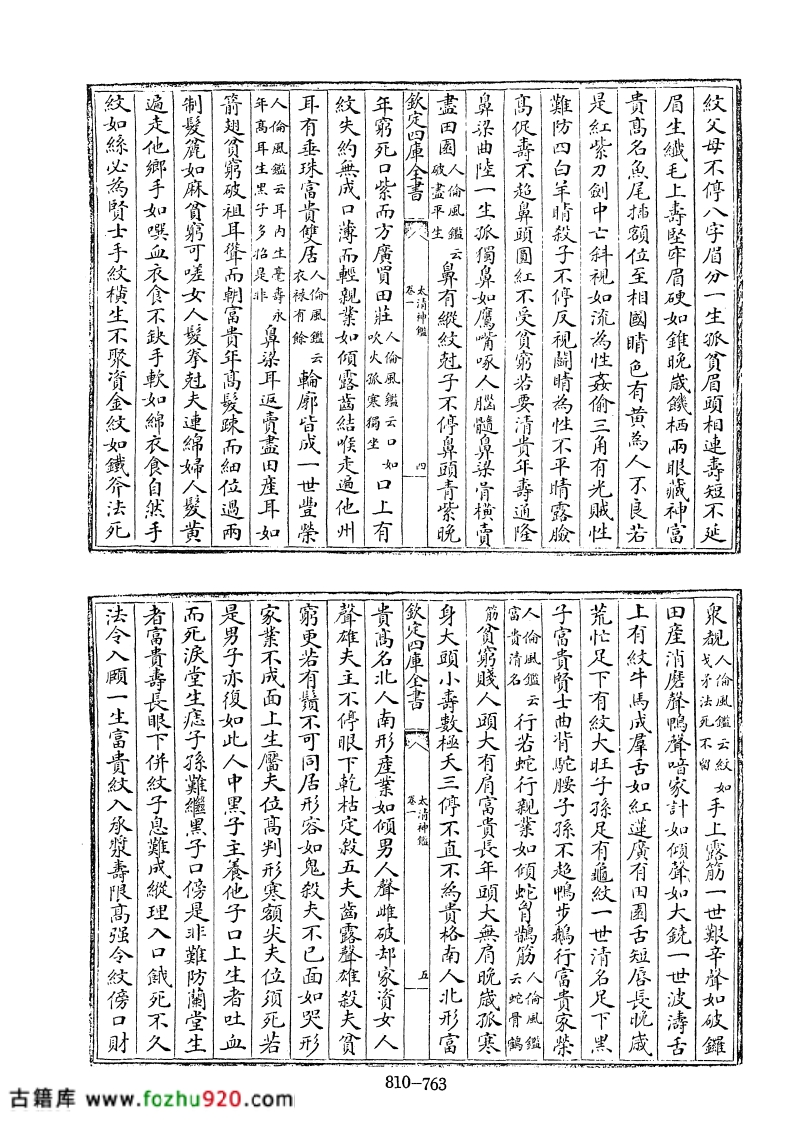 紋父母不停八字眉分一生孤貧眉頭相連壽短不延
眉生纖毛上壽堅牢眉硬如錐晚歲饑栖兩眼藏神富
貴髙名魚尾挿額位至相國睛色有黄為人不良若
是紅紫刀劍中亡斜視如流為性姦偷三角有光賊性
難防四白羊睛殺子不停反視鬬睛為性不平睛露臉
髙促壽不超鼻頭圓紅不受貧窮若要清貴年壽通隆
鼻梁曲陸一生孤獨鼻如鷹嘴啄人腦髓鼻梁骨橫賣
盡田園人倫風鑑云破盡平生鼻有縱紋尅子不停鼻頭青紫晚
欽定四庫全書
太清神鑑
卷一
四
年窮死口紫而方廣買田莊人倫風鑑云口如吹火孤寒獨坐口上有
紋失約無成口薄而輕親業如傾露齒結喉走遍他州
耳有垂珠富貴雙居人倫風鑑云衣祿有餘輪廓皆成一世豐榮
人倫風鑑云耳内生毫壽永年髙耳生黑子多招是非鼻梁耳返賣盡田産耳如
箭翅貧窮破祖耳聳而朝富貴年髙髮疎而細位過兩
制髮麄如麻貧窮可嗟女人髮拳尅夫連綿婦人髮黄
遍走他鄉手如噀血衣食不缺手軟如綿衣食自然手
紋如絲必為賢士手紋橫生不聚資金紋如鐵斧法死
衆覩人倫風鑑云紋如戈矛法死不留手上露筋一世艱辛聲如破鑼
田産消磨聲鴨聲喑家計如傾聲如大鐃一世波濤舌
上有紋牛馬成羣舌如紅蓮廣有田園舌短唇長晚歲
荒忙足下有紋大旺子孫足有龜紋一世清名足下黑
子富貴賢士曲背駝腰子孫不超鴨步鵝行富貴家榮
人倫風鑑云富貴清名行若蛇行親業如傾蛇骨鵲筋人倫風鑑云蛇骨鶴
筋貧窮賤人頭大有肩富貴長年頭大無肩晚歲孤寒
身大頭小壽數極夭三停不直不為貴格南人北形富
欽定四庫全書
太清神鑑
卷一
五
貴髙名北人南形産業如傾男人聲雌破却家資女人
聲雄夫主不停眼下乾枯定殺五夫齒露聲雄殺夫貧
窮更若有鬚不可同居形容如鬼殺夫不已面如哭形
家業不成面上生靨夫位髙判形寒額尖夫位須死若
是男子亦復如此人中黑子主養他子口上生者吐血
而死淚堂生痣子孫難繼黑子口傍是非難防蘭堂生
者富貴壽長眼下併紋子息難成縱理入口餓死不久
法令入頤一生富貴紋入承漿壽限髙强令紋傍口財
810-763
古籍库 www.fozhu920.com